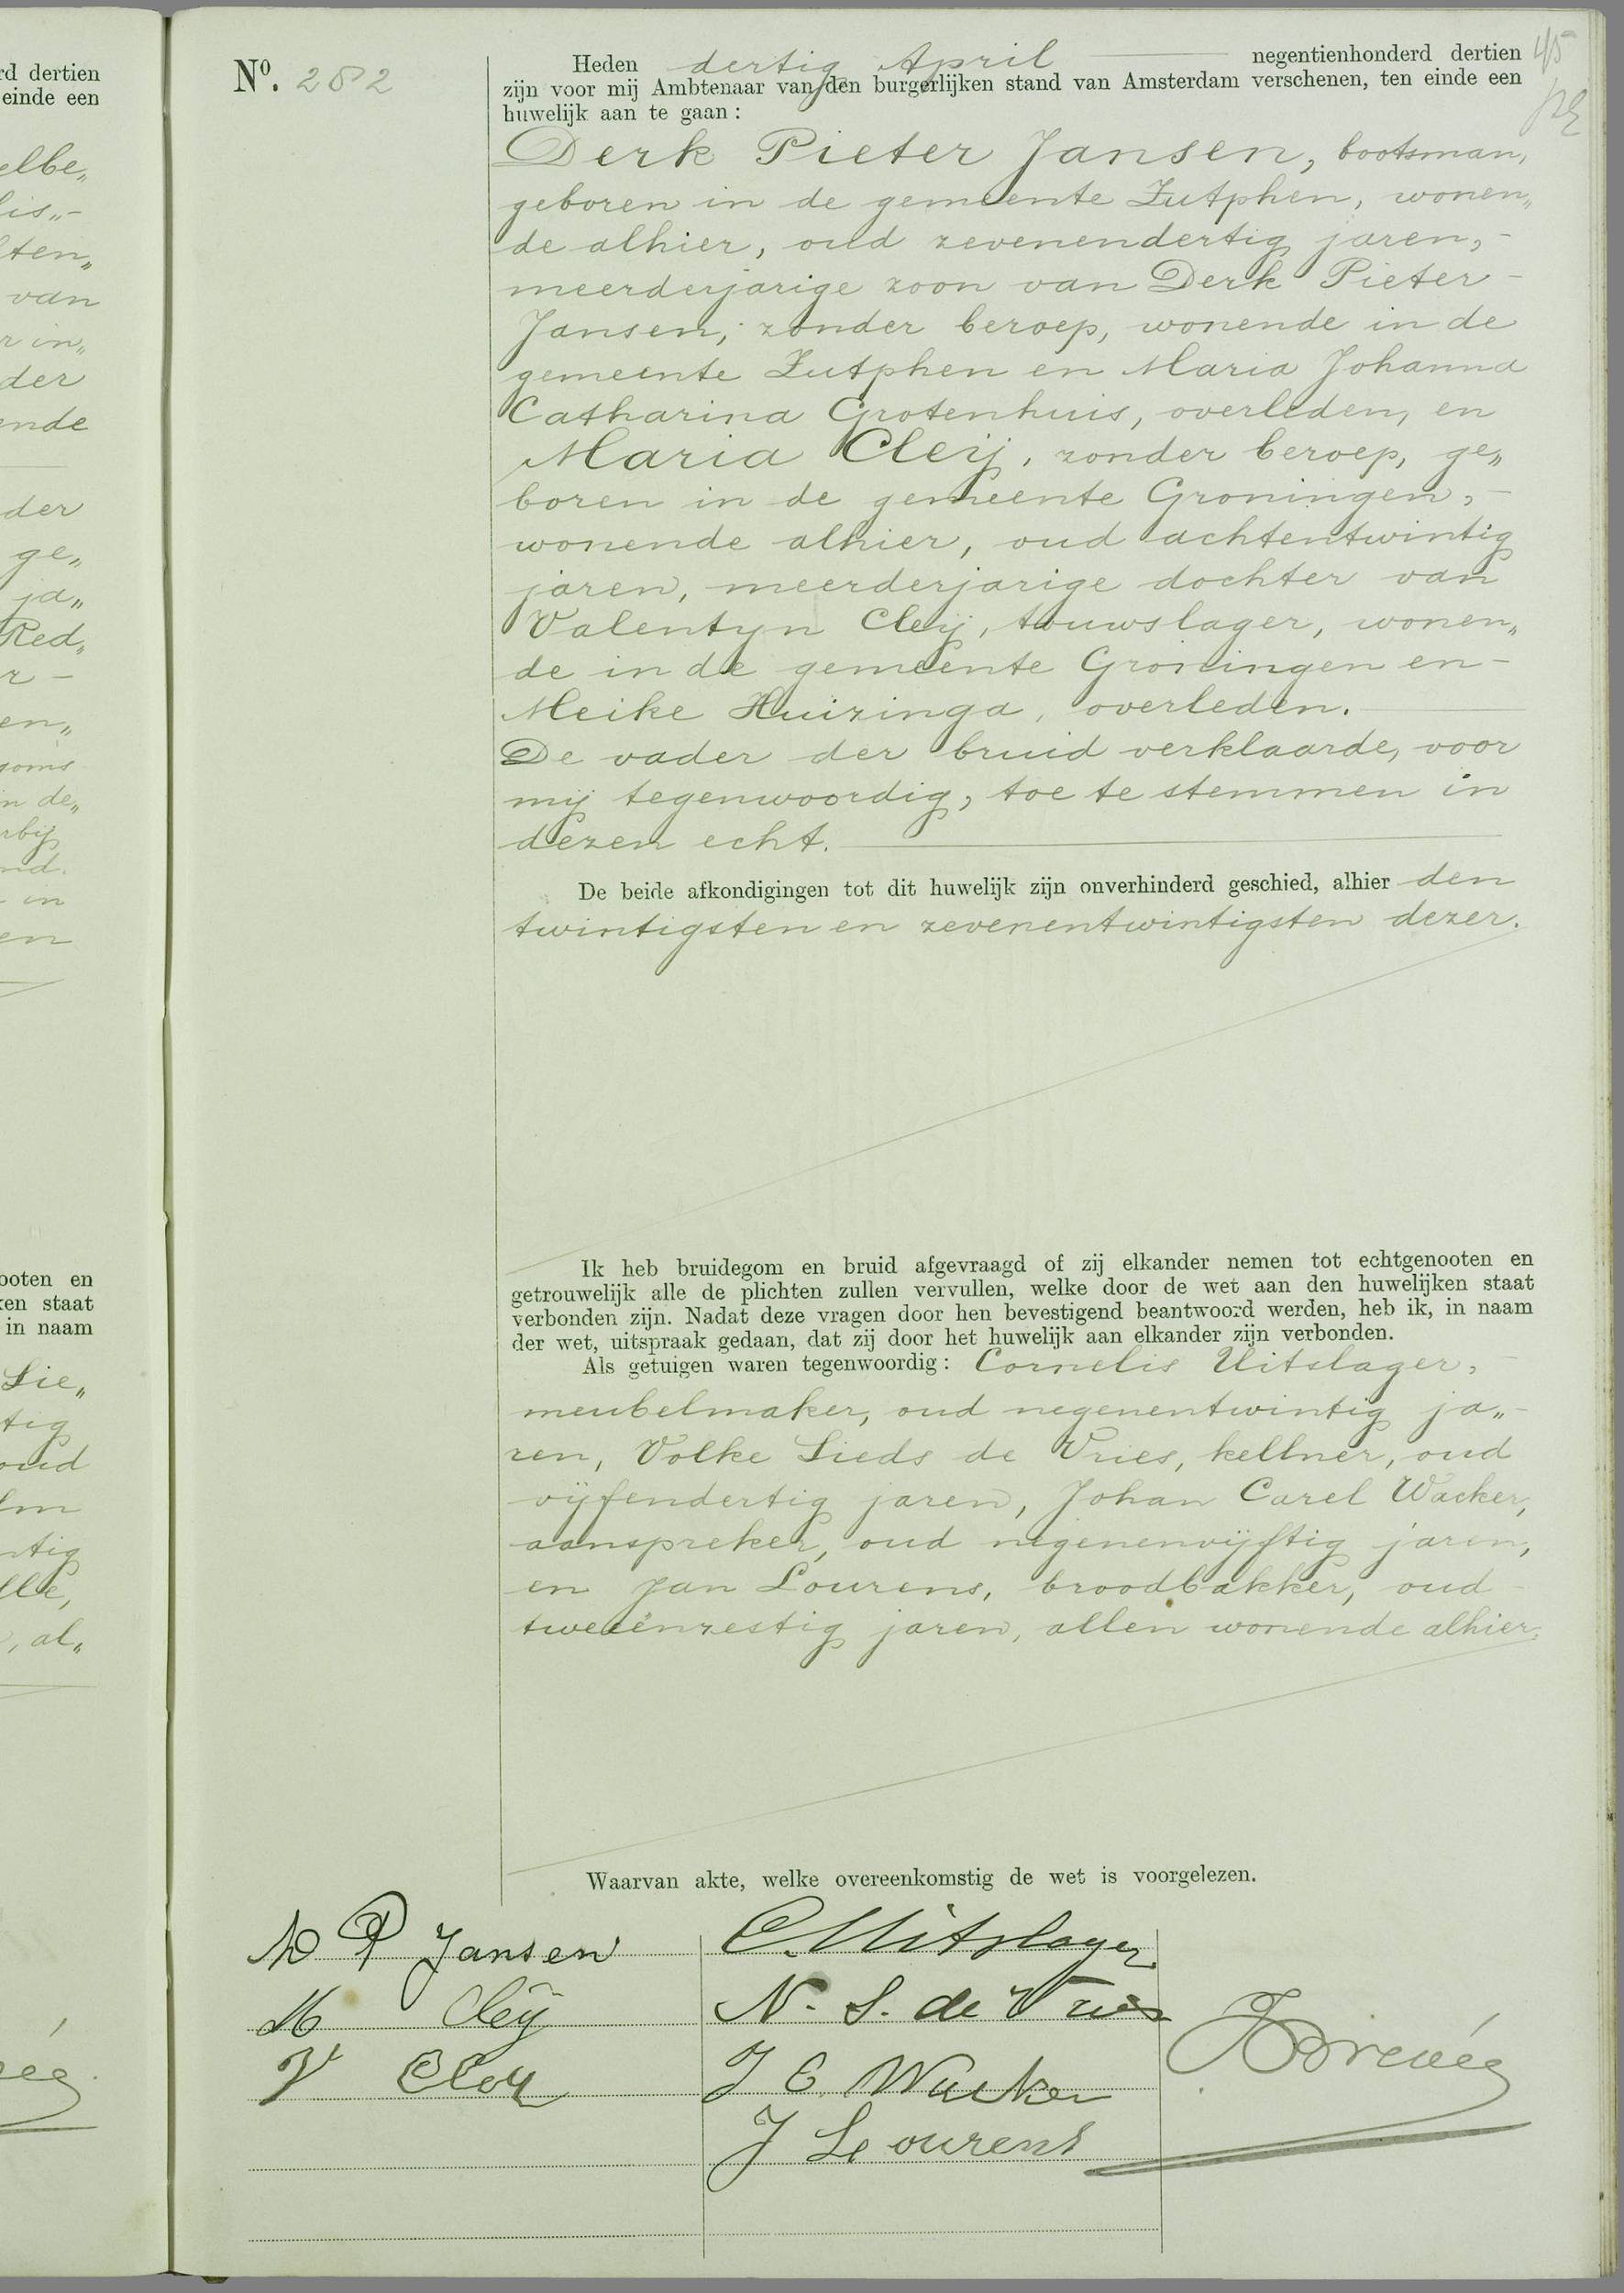 rd dertien
einde een
elbe„
lis„-
ten„
van
r in„
der
ende
der
ge„
ja„
Red„
r -
en„
goms
in de„
rbij
nd.
- in
en
ooten en
ken staat
in naam
Lie„
tig
oud
lm
ntig
lle,
, al„
Nº. 282
45
Heden dertig April negentienhonderd dertien
zijn voor mij Ambtenaar van den burgerlijken stand van Amsterdam verschenen, ten einde een
huwelijk aan te gaan :
Derk Pieter Jansen, bootsman,
geboren in de gemeente Zutphen, wonen„
de alhier, oud zevenendertig jaren, -
meerderjarige zoon van Derk Pieter -
Jansen, zonder beroep, wonende in de
gemeente Zutphen en Maria Johanna
Catharina Grotenhuis, overleden, en
Maria Cleij, zonder beroep, ge„
boren in de gemeente Groningen, -
wonende alhier, oud achtentwintig
jaren, meerderjarige dochter van
Valentyn Cleij, touwslager, wonen„
de in de gemeente Groningen en -
Meike Huizinga, overleden.
De vader der bruid verklaarde, voor
mij tegenwoordig, toe te stemmen in
dezen echt.
De beide afkondigingen tot dit huwelijk zijn onverhinderd geschied, alhier den
twintigsten en zevenentwintigsten dezer.
Ik heb bruidegom en bruid afgevraagd of zij elkander nemen tot echtgenooten en
getrouwelijk alle de plichten zullen vervullen, welke door de wet aan den huwelijken staat
verbonden zijn. Nadat deze vragen door hen bevestigend beantwoord werden, heb ik, in naam
der wet, uitspraak gedaan, dat zij door het huwelijk aan elkander zijn verbonden.
Als getuigen waren tegenwoordig : Cornelis Uitslager, -
meubelmaker, oud negenentwintig ja„-
ren, Volke Lieds de Vries, kellner, oud
vijfendertig jaren, Johan Carel Wacker,
aanspreker, oud negenenvijftig jaren,
en Jan Lourens, broodbakker, oud -
tweeënzestig jaren, allen wonende alhier.
Waarvan akte, welke overeenkomstig de wet is voorgelezen.
D P Jansen
M Cleÿ
V Cley
C. Uitslager
N. S. de Vries
J C. Wacker
J Lourens